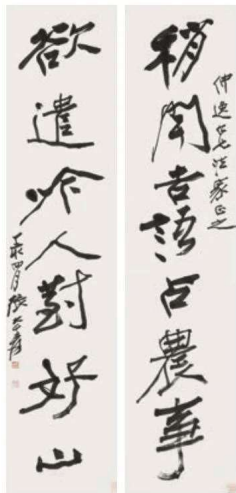 仲逸仁兄法家正之
稍聞吉語占農事
欲遣吟人對好山
四月張大千爰